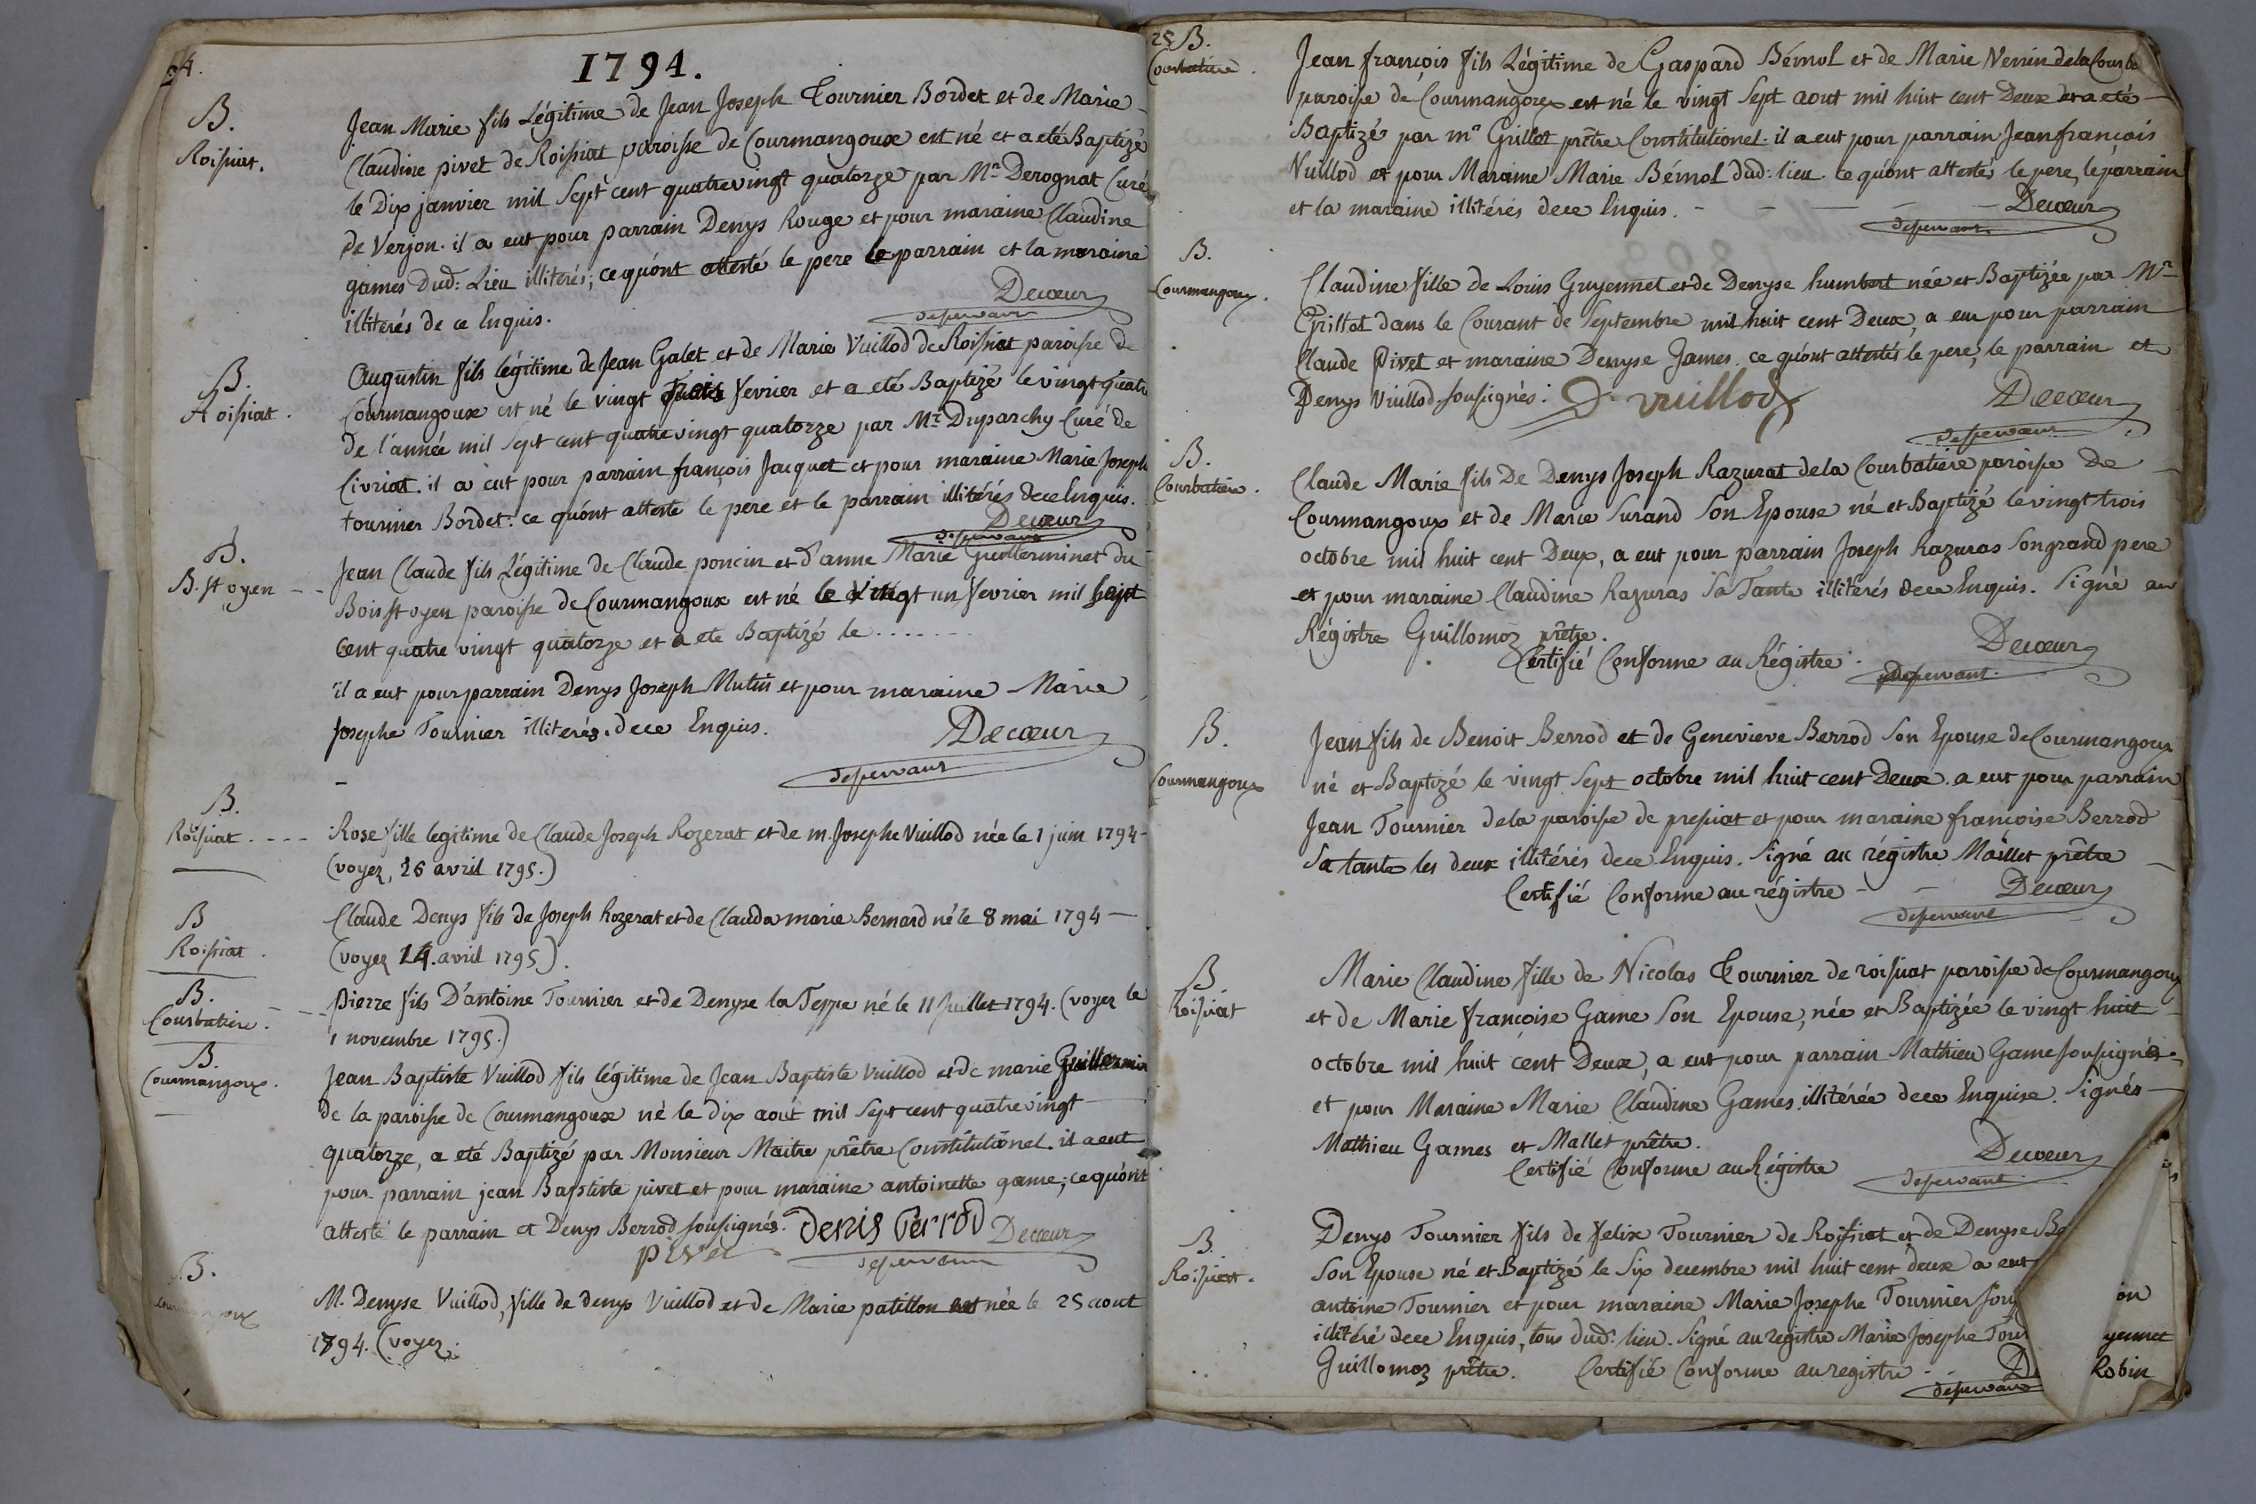 24.
1794.
B.
Roissiat.
Jean Marie fils Légitime de Jean Joseph Tournier Bordet et de Marie
Claudine pivet de Roissiat paroisse de Courmangoux est né et a eté Baptizé
le Dix janvier mil Sept cent quatrevingt quatorze par Mr Derognat Curé
de Verjon. il a eut pour parrain Denys Rouge et pour maraine Claudine
games Dud: Lieu illiterés; ce qu'ont attesté le pere le parrain et la maraine
illiterés de ce Enquis.
Decœur
desservant
B.
Roissiat.
Augustin fils légitime de Jean Galet et de Marie Vuillod de Roissiat paroisse de
Courmangoux est né le vingt trois fevrier et a eté Baptizé le vingt quatre
de l'année mil Sept cent quatre vingt quatorze par Mr Duparchy Curé de
Civriat. il a eut pour parrain françois Jacquet et pour maraine Marie Joseph
tournier Bordet: ce qu'ont atteste le pere et le parrain illitérés de ce Enquis.
Decœur
desservant
B.
B. st oyen
Jean Claude fils Légitime de Claude poncin et d'anne Marie Guillerminet du
Bois st oyen paroisse de Courmangoux est né le vingt un fevrier mil Sept
cent quatre vingt quatorze et a ete Baptizé le .......
il a eut pour parrain Denys Joseph Mutin et pour maraine Marie
Josephe Tournier illiterés de ce Enquis.
Decœur
desservant
B.
Roissiat.
Rose fille legitime de Claude Joseph Rozerat et de m. Josephe Vuillod née le 1 juin 1794
(voyez, 26 avril 1795.)
B
Roissiat.
Claude Denys fils de Joseph Rozerat et de Clauda marie Bernard né le 8 mai 1794
(voyez 14. avril 1795).
B.
Courbatiere.
Pierre fils D'antoine Tournier et de Denyse la Teppe né le 11 Juillet 1794. (voyez le
1 novembre 1795.)
B.
Courmangoux.
Jean Baptiste Vuillod fils légitime de Jean Baptiste Vuillod et de marie Guillermin
de la paroisse de Courmangoux né le dix août mil Sept cent quatre vingt
quatorze, a eté Baptizé par Monsieur Maitre prêtre Constitutionel. il a eut
pour parrain jean Baptiste pivet et pour maraine antoinette game; ce qu'ont
attesté le parrain et Denys Berrod soussignés. Denis Berrod Decœur
pivet desservant
B.
Courmangoux
M. Denyse Vuillod, fille de denys Vuillod et de Marie patillon est née le 25 aout
1794. (voyez
25 B.
Courbatiere.
Jean françois fils Légitime de Gaspard Bémol et de Marie Verrin de la Courba
paroisse de Courmangoux est né le vingt Sept aout mil huit cent Deux et a eté
Baptizé par mr Grillet prêtre Constitutionel. il a eut pour parrain Jean françois
Vuillod et pour Maraine Marie Bémol dud: lieu. ce qu'ont attestés le pere, le parrain
et la maraine illitérés de ce Enquis.
Decœur
desservant
B.
Courmangoux.
Claudine fille de Louis Guyennet et de Denyse humbert née et Baptizée par Mr
Grillet dans le Courant de Septembre mil huit cent Deux, a eu pour parrain
Claude Pivet et maraine Denyse James. ce qu'ont attestés le pere, le parrain et
Denys Vuillod soussignés: D vuillod
Decœur
desservant
B.
Courbatiere.
Claude Marie fils De Denys Joseph Razurat de la Courbatiere paroisse De
Courmangoux et de Marie Surand Son Epouse né et Baptizé le vingt trois
octobre mil huit cent Deux, a eut pour parrain Joseph Razuras Son grand pere
et pour maraine Claudine Razuras Sa Tante illitérés de ce Enquis. Signé au
Régistre Guillomoz prêtre.
Certifié Conforme au Régistre.
Decœur
desservant.
B.
Courmangoux
Jean fils de Benoit Berrod et de Genevieve Berrod Son Epouse de Courmangoux
né et Baptizé le vingt Sept octobre mil huit cent Deux. a eut pour parrain
Jean Tournier de la paroisse de pressiat et pour maraine françoise Berrod
Sa tante les deux illitérés de ce Enquis. Signé au régistre Mallet prêtre
Certifié Conforme au régistre
Decœur
desservant
B.
Roissiat
Marie Claudine fille de Nicolas Tournier de roissiat paroisse de Courmangoux
et de Marie françoise Game Son Epouse, née et Baptizée le vingt huit
octobre mil huit cent Deux, a eut pour parrain Mathieu Game soussigné
et pour Maraine Marie Claudine Games illitérée de ce Enquise. Signés
Mathieu Games et Mallet prêtre.
Certifié Conforme au Régistre
Decœur
desservant
B.
Roissiat.
Denys Tournier fils de felix Tournier de Roissiat et de Denyse Be
Son Epouse né et Baptizé le Six decembre mil huit cent deux a eut
antoine Tournier et pour maraine Marie Josephe Tournier sous
illitéré de ce Enquis, tous dud: lieu. Signé au registre Marie Josephe Tour
Guillomoz prêtre. Certifié Conforme au registre
D
desservant
on
yennet
Robin